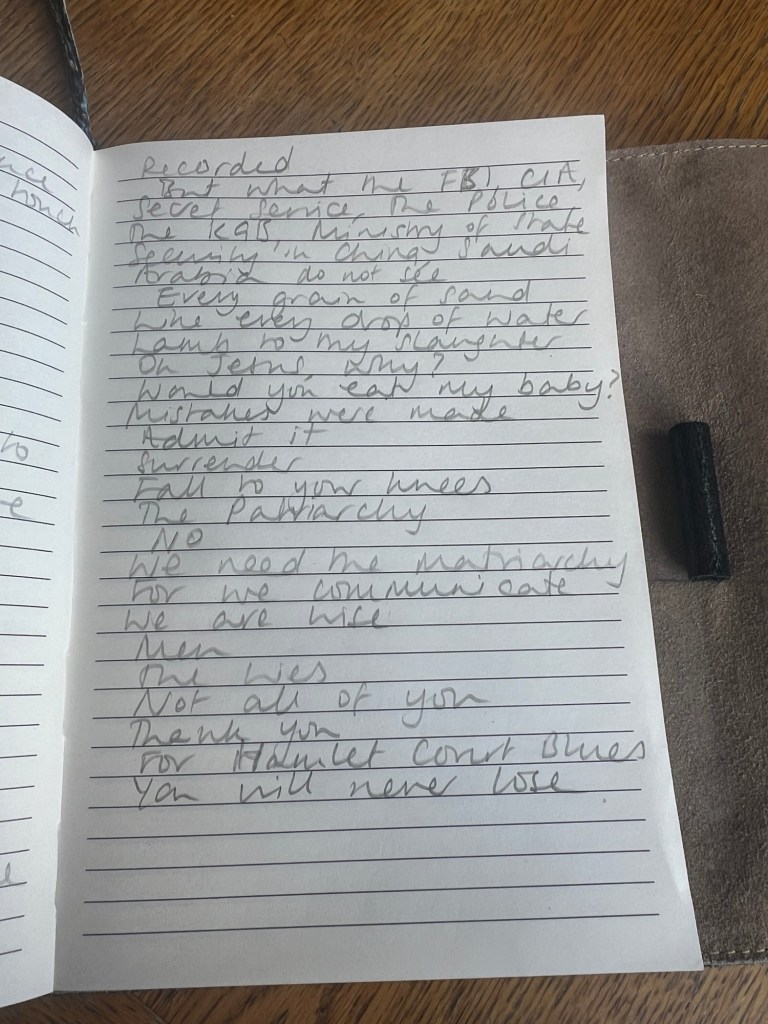 Recorded
But what the FBI, CIA,
Secret Service, the Police
The KGB, Ministry of State
Security in China, Saudi
Arabia do not see
Every grain of sand
Like every drop of water
Lamb to my slaughter
Oh Jesus, why?
Would you eat my baby?
Mistakes were made
Admit it
Surrender
Fall to your knees
The Patriarchy
NO
We need the matriarchy
For we communicate
We are wise
Men
The lies
Not all of you
Thank you
For Hamlet Court Blues
You will never lose
to
e